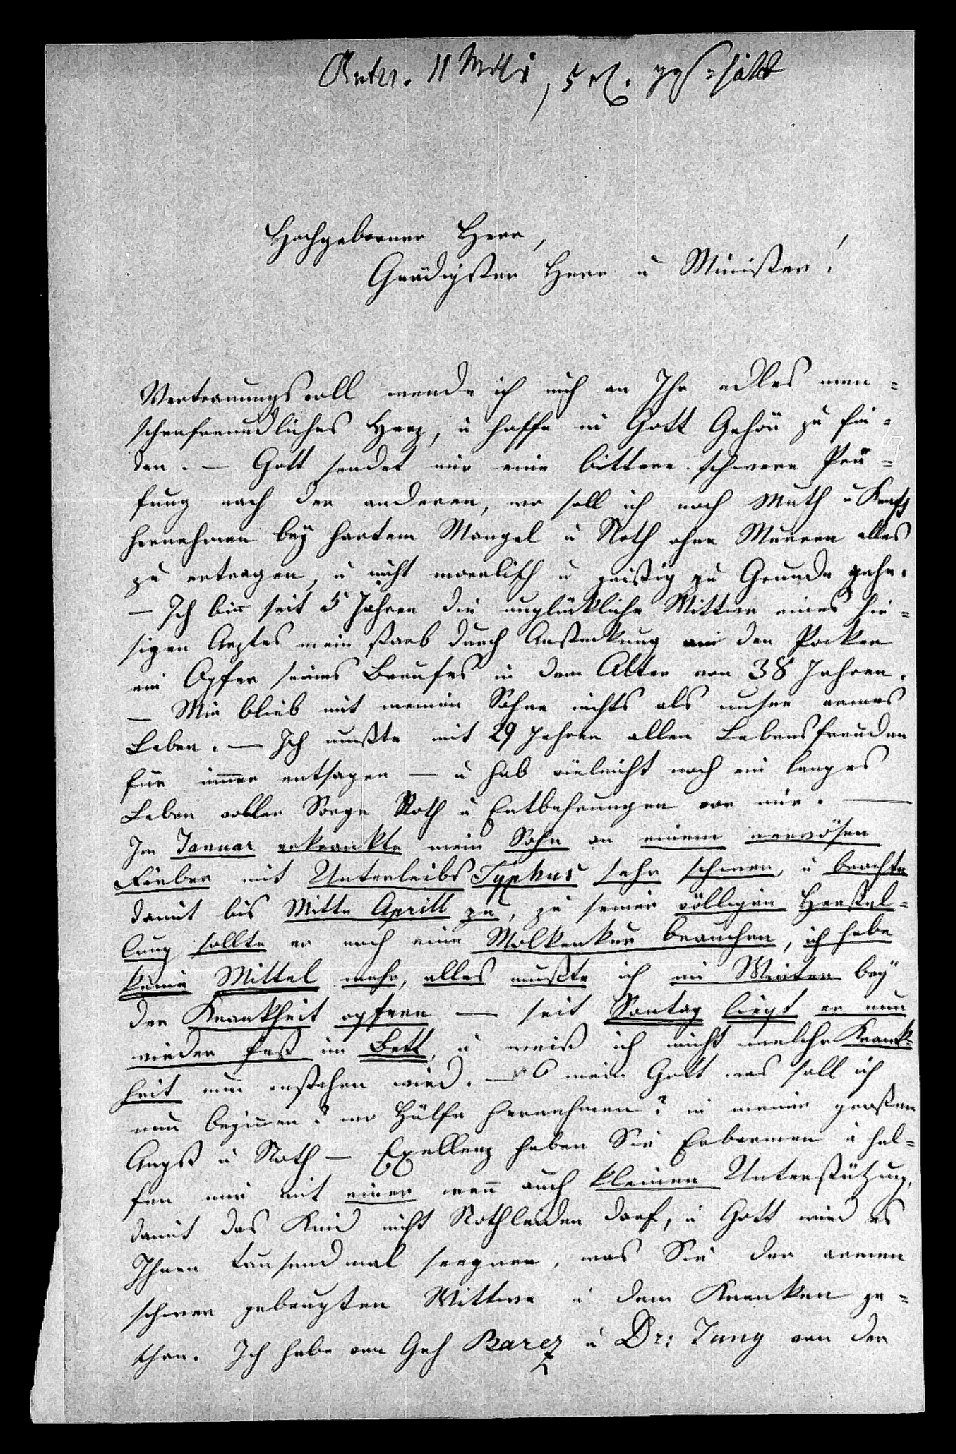 Hochgeborner Herr,
Gnädigster Herr u Minister!
Vertrauungsvoll wende ich mich an Ihr edles men-
schenfreundliches Herz, u hoffe in Gott Gehör zu fin-
den. — Gott sendet mir eine bittere schwere Prü-
fung nach der anderen, wo soll ich noch Muth u Kraft
hernehmen bey hartem Mangel u Noth ohne Murren alles
zu ertragen, u nicht moralisch u geistig zu Grunde gehn.
— Ich bin seit 5 Jahren die unglükliche Wittwe eines hie-
sigen Arztes mein starb durch Ansteckung der Pocken
ein Opfer seines Berufes in dem Alter von 38 Jahren.
— Mir blieb mit meinem Sohne nichts als unser armes
Leben. — Ich mußte mit 29 Jahren allen Lebensfreuden
für immer entsagen — u hab vieleicht noch ein langes
Leben voller Sorge Noth u Entbehrungen vor mir. —
Im Januar erkrankte mein Sohn an einem nervösen
Fieber mit Unterleibs Typhus sehr schwer, u brachte
damit bis Mitte Aprill zu, zu seiner völligen Herstel-
lung sollte er noch eine Molkenkur brauchen, ich habe
keine Mittel mehr, alles mußte ich im Winter bey
der Krankheit opfern — seit Sontag liegt er nun
wieder fest im Bett, u weiß ich nicht welche Krank-
heit nun enstehen wird. — O mein Gott was soll ich
nun beginnen? wo Hülfe hernehmen? in meiner großen
Angst u Noth — Exellenz haben Sie Erbarmen u hel-
fen mir mit einer wenn auch kleinen Unterstützung,
damit das Kind nicht Nothleiden darf, u Gott wird es
Ihnen tausend mal seegnen, was Sie der armen
schwer gebeugten Wittwe u dem Kranken ge-
than. Ich habe von Geh Barez u Dr: Jung von der